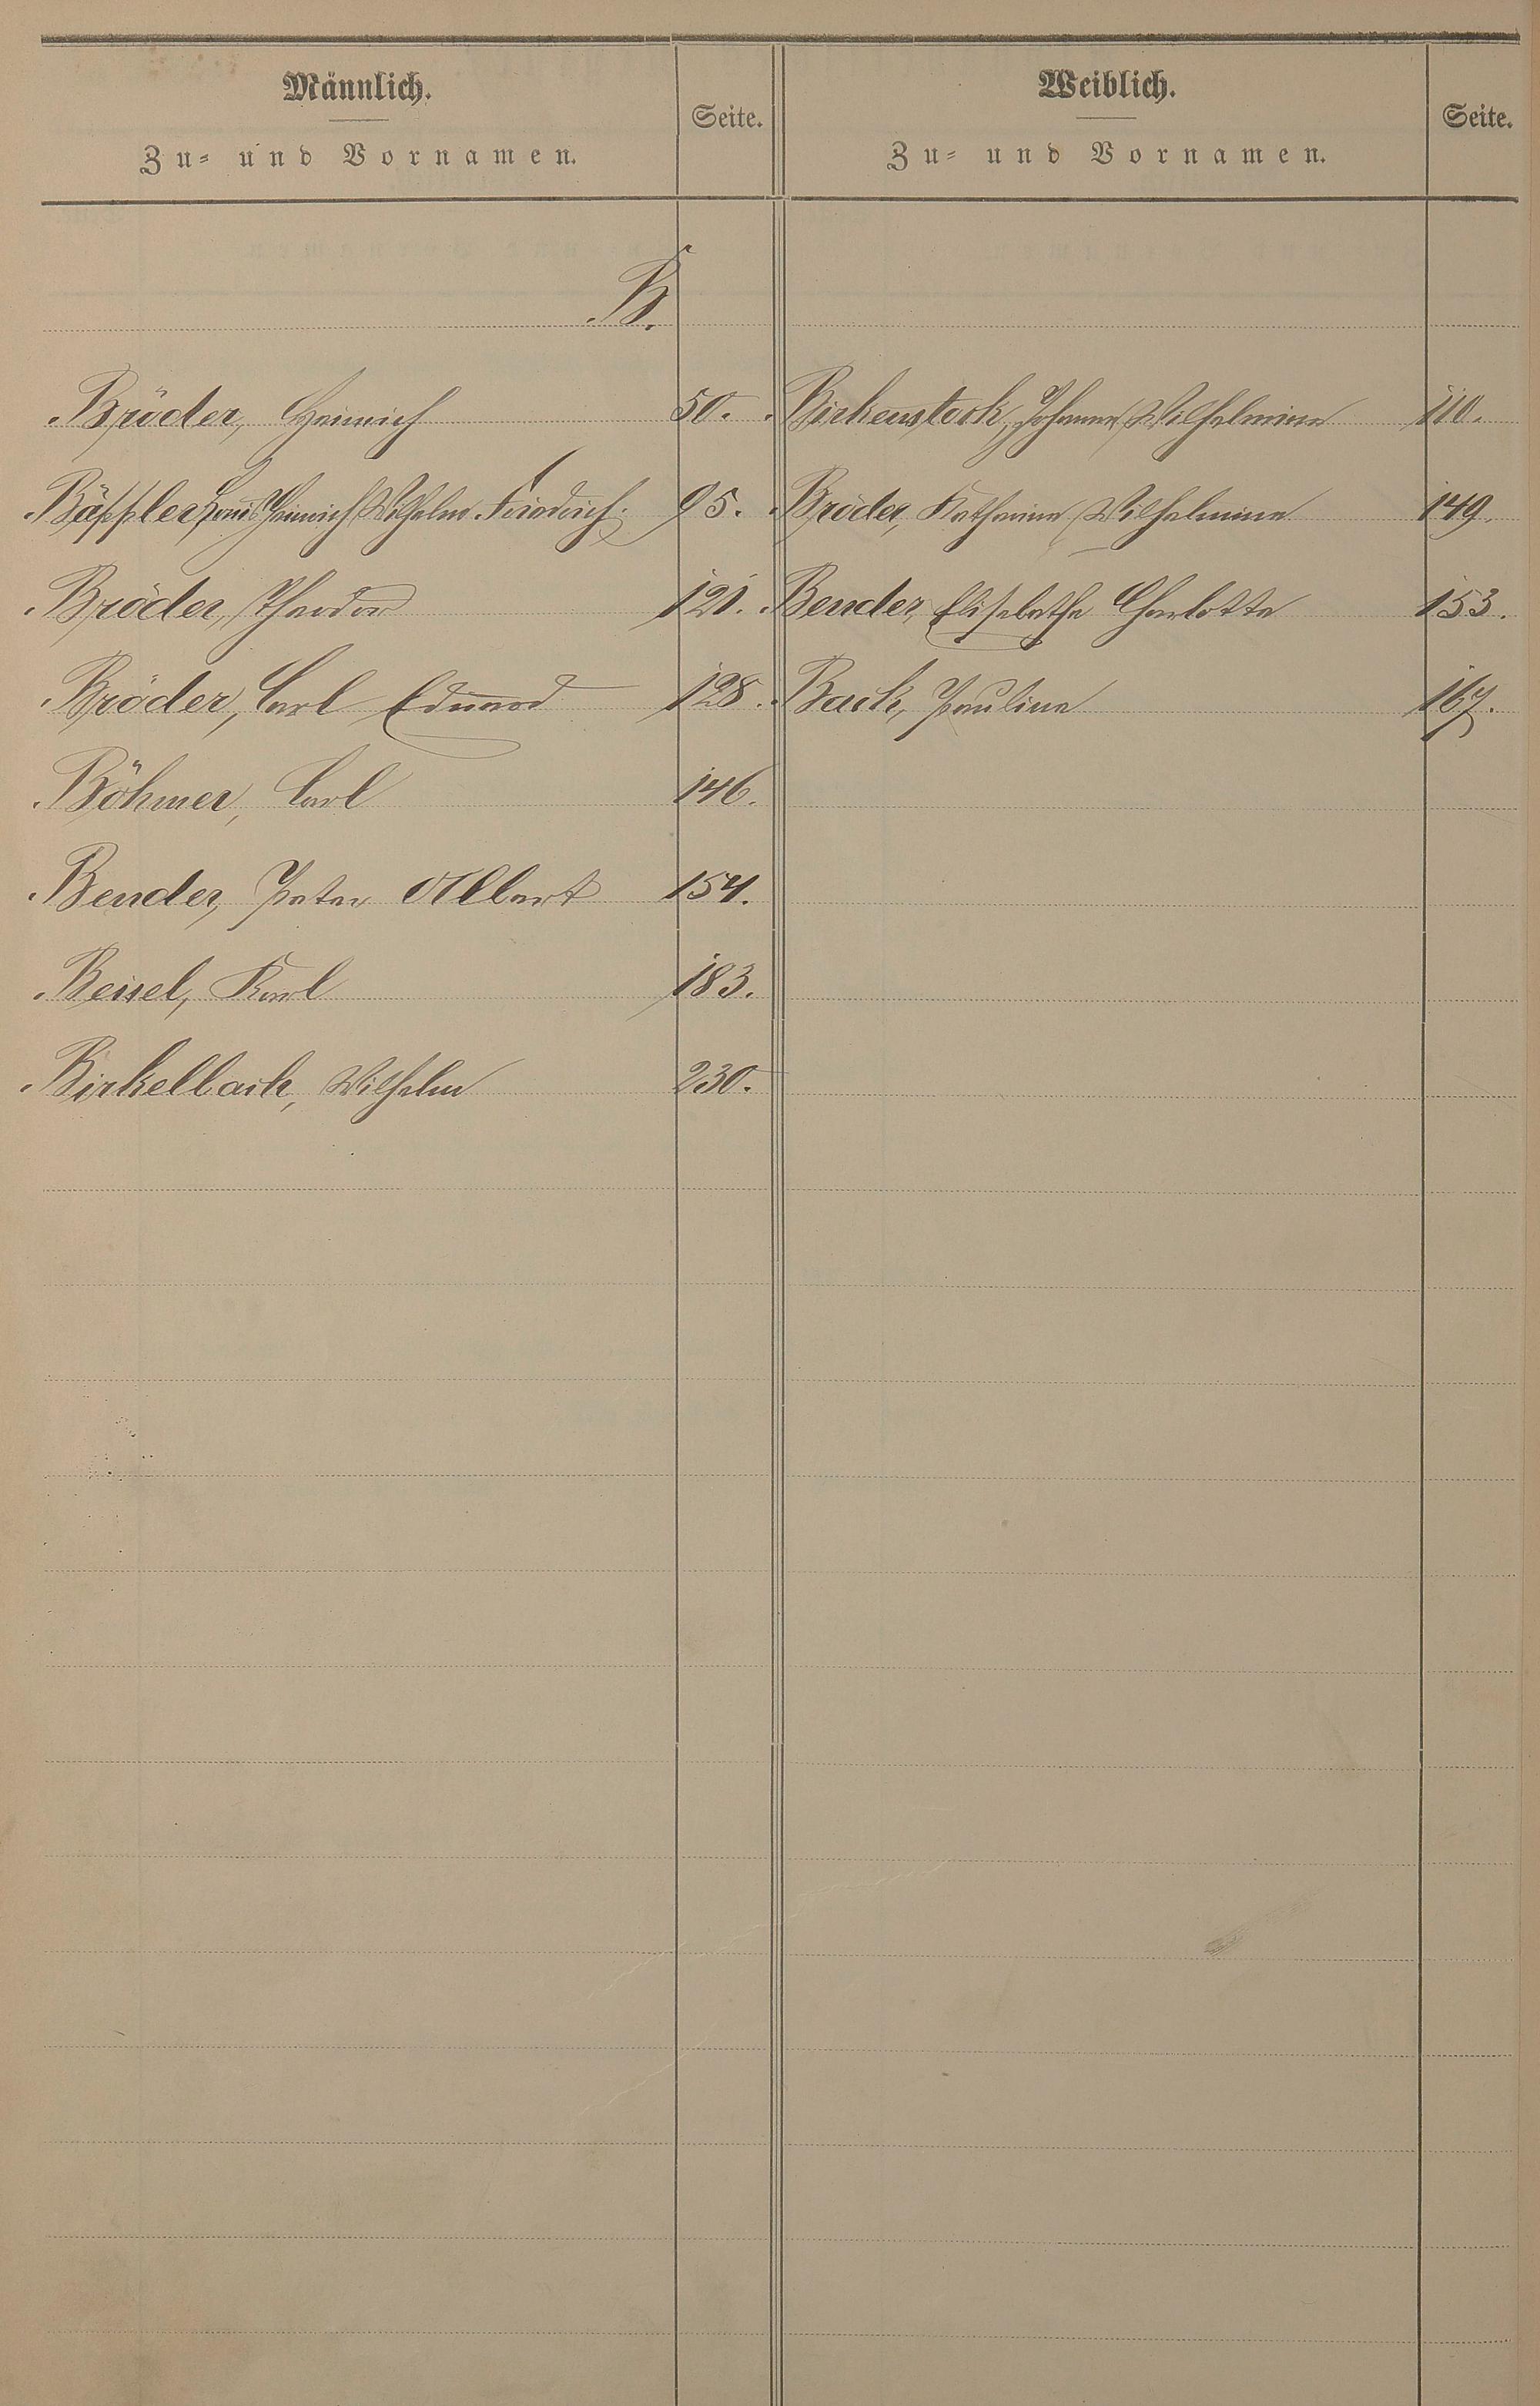 Männlich.
Zu- und Vornamen.
Seite.
Weiblich.
Zu- und Vornamen.
Seite.
B.
Bröder, Heinrich 50. Birkenstock, Johanna Wilhelmine 110.
Bäppler, Louis Heinrich Wilhelm Friedrich. 95. Bröder, Katharina Wilhelmine 149.
Bröder, Theodor 121. Bender, Elisabetha Charlotte 153.
Bröder, Carl Eduard 128. Back, Pauline 167.
Böhmer, Carl 146.
Bender, Peter Albert 154.
Beisel, Karl 183.
Birkelbach, Wilhelm 230.